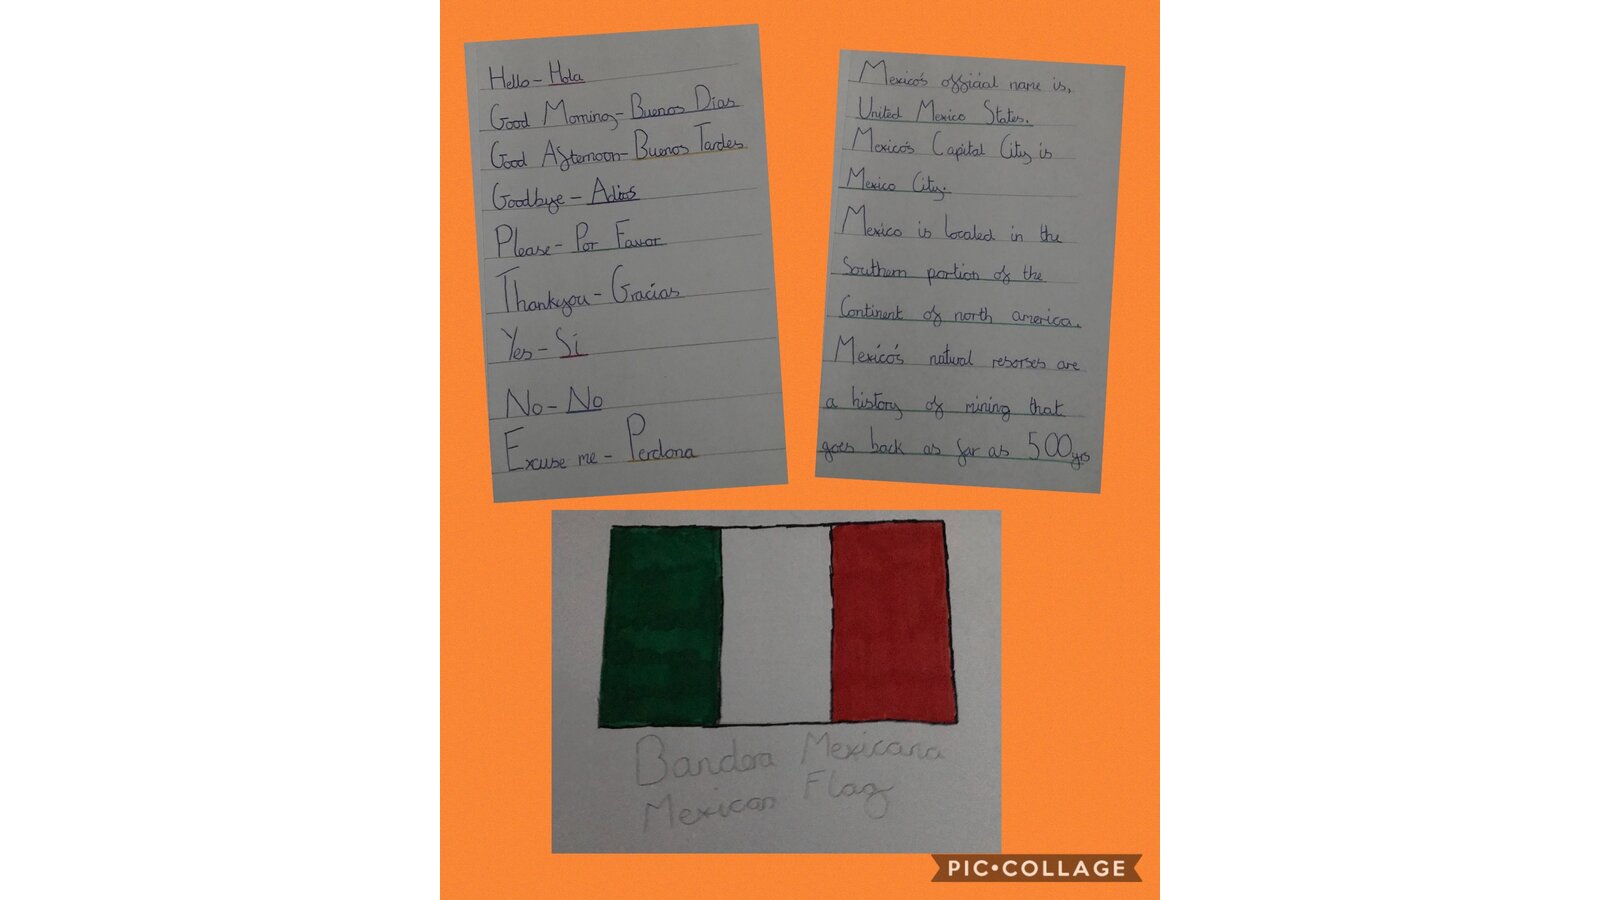 Hello - Hola
Good Morning - Buenos Días
Good Afternoon - Buenos Tardes
Goodbye - Adíos
Please - Por Favor
Thankyou - Gracias
Yes - Sí
No - No
Excuse me - Perdona
Mexico's official name is,
United Mexico States.
Mexico's Capital City is
Mexico City.
Mexico is located in the
Southern portion of the
Continent of north america.
Mexico's natural resorses are
a history of mining that
goes back as far as 500yrs
Bandera Mexicana
Mexican Flag
PIC•COLLAGE